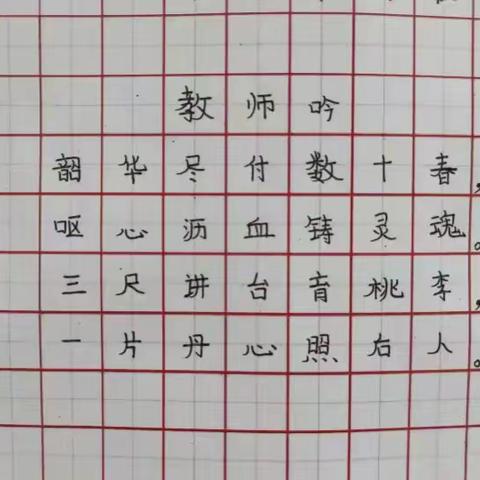 教师吟
韶华尽付数十春，
呕心沥血铸灵魂。
三尺讲台育桃李，
一片丹心照后人。